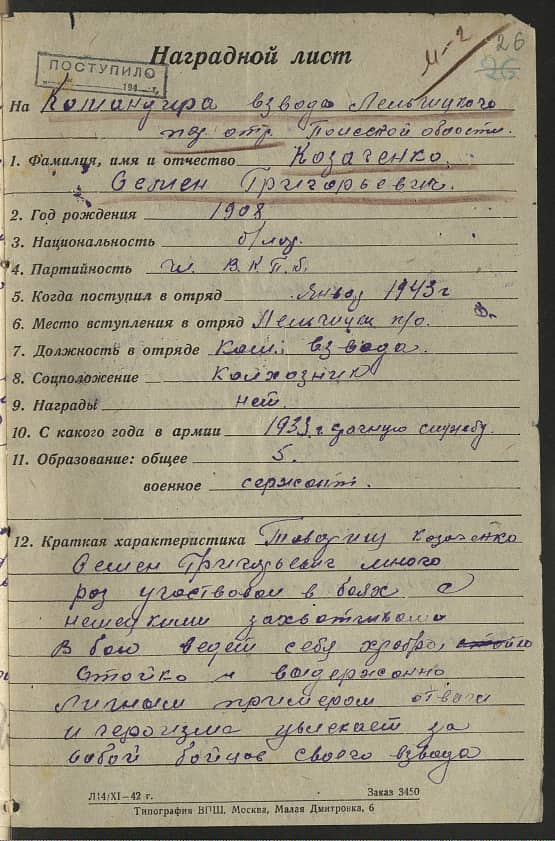 М-2
26
26
ПОСТУПИЛО
194
Наградной лист
На Командира взвода Лельчицкого
парт. отр. Полесской области.
1. Фамилия, имя и отчество Козаченко
Семен Григорьевич.
2. Год рождения 1908
3. Национальность б/лор.
4. Партийность чл. В.К.П.б.
5. Когда поступил в отряд Январь 1943 г
6. Место вступления в отряд Лельчицк р/о.
7. Должность в отряде Ком. взвода.
8. Соцположение Колхозник
9. Награды нет.
10. С какого года в армии 1933 г. срочную службу.
11. Образование: общее 5.
военное сержант.
12. Краткая характеристика Товарищ Козаченко
Семен Григорьевич много
раз участвовал в боях с
немецкими захватчиками
В бою ведет себя храбро,
стойко и выдержанно
Личным примером отваги
и героизма увлекает за
собой бойцов своего взвода
Л14/XI—42 г.
Заказ 3450
Типография ВПШ. Москва, Малая Дмитровка, 6